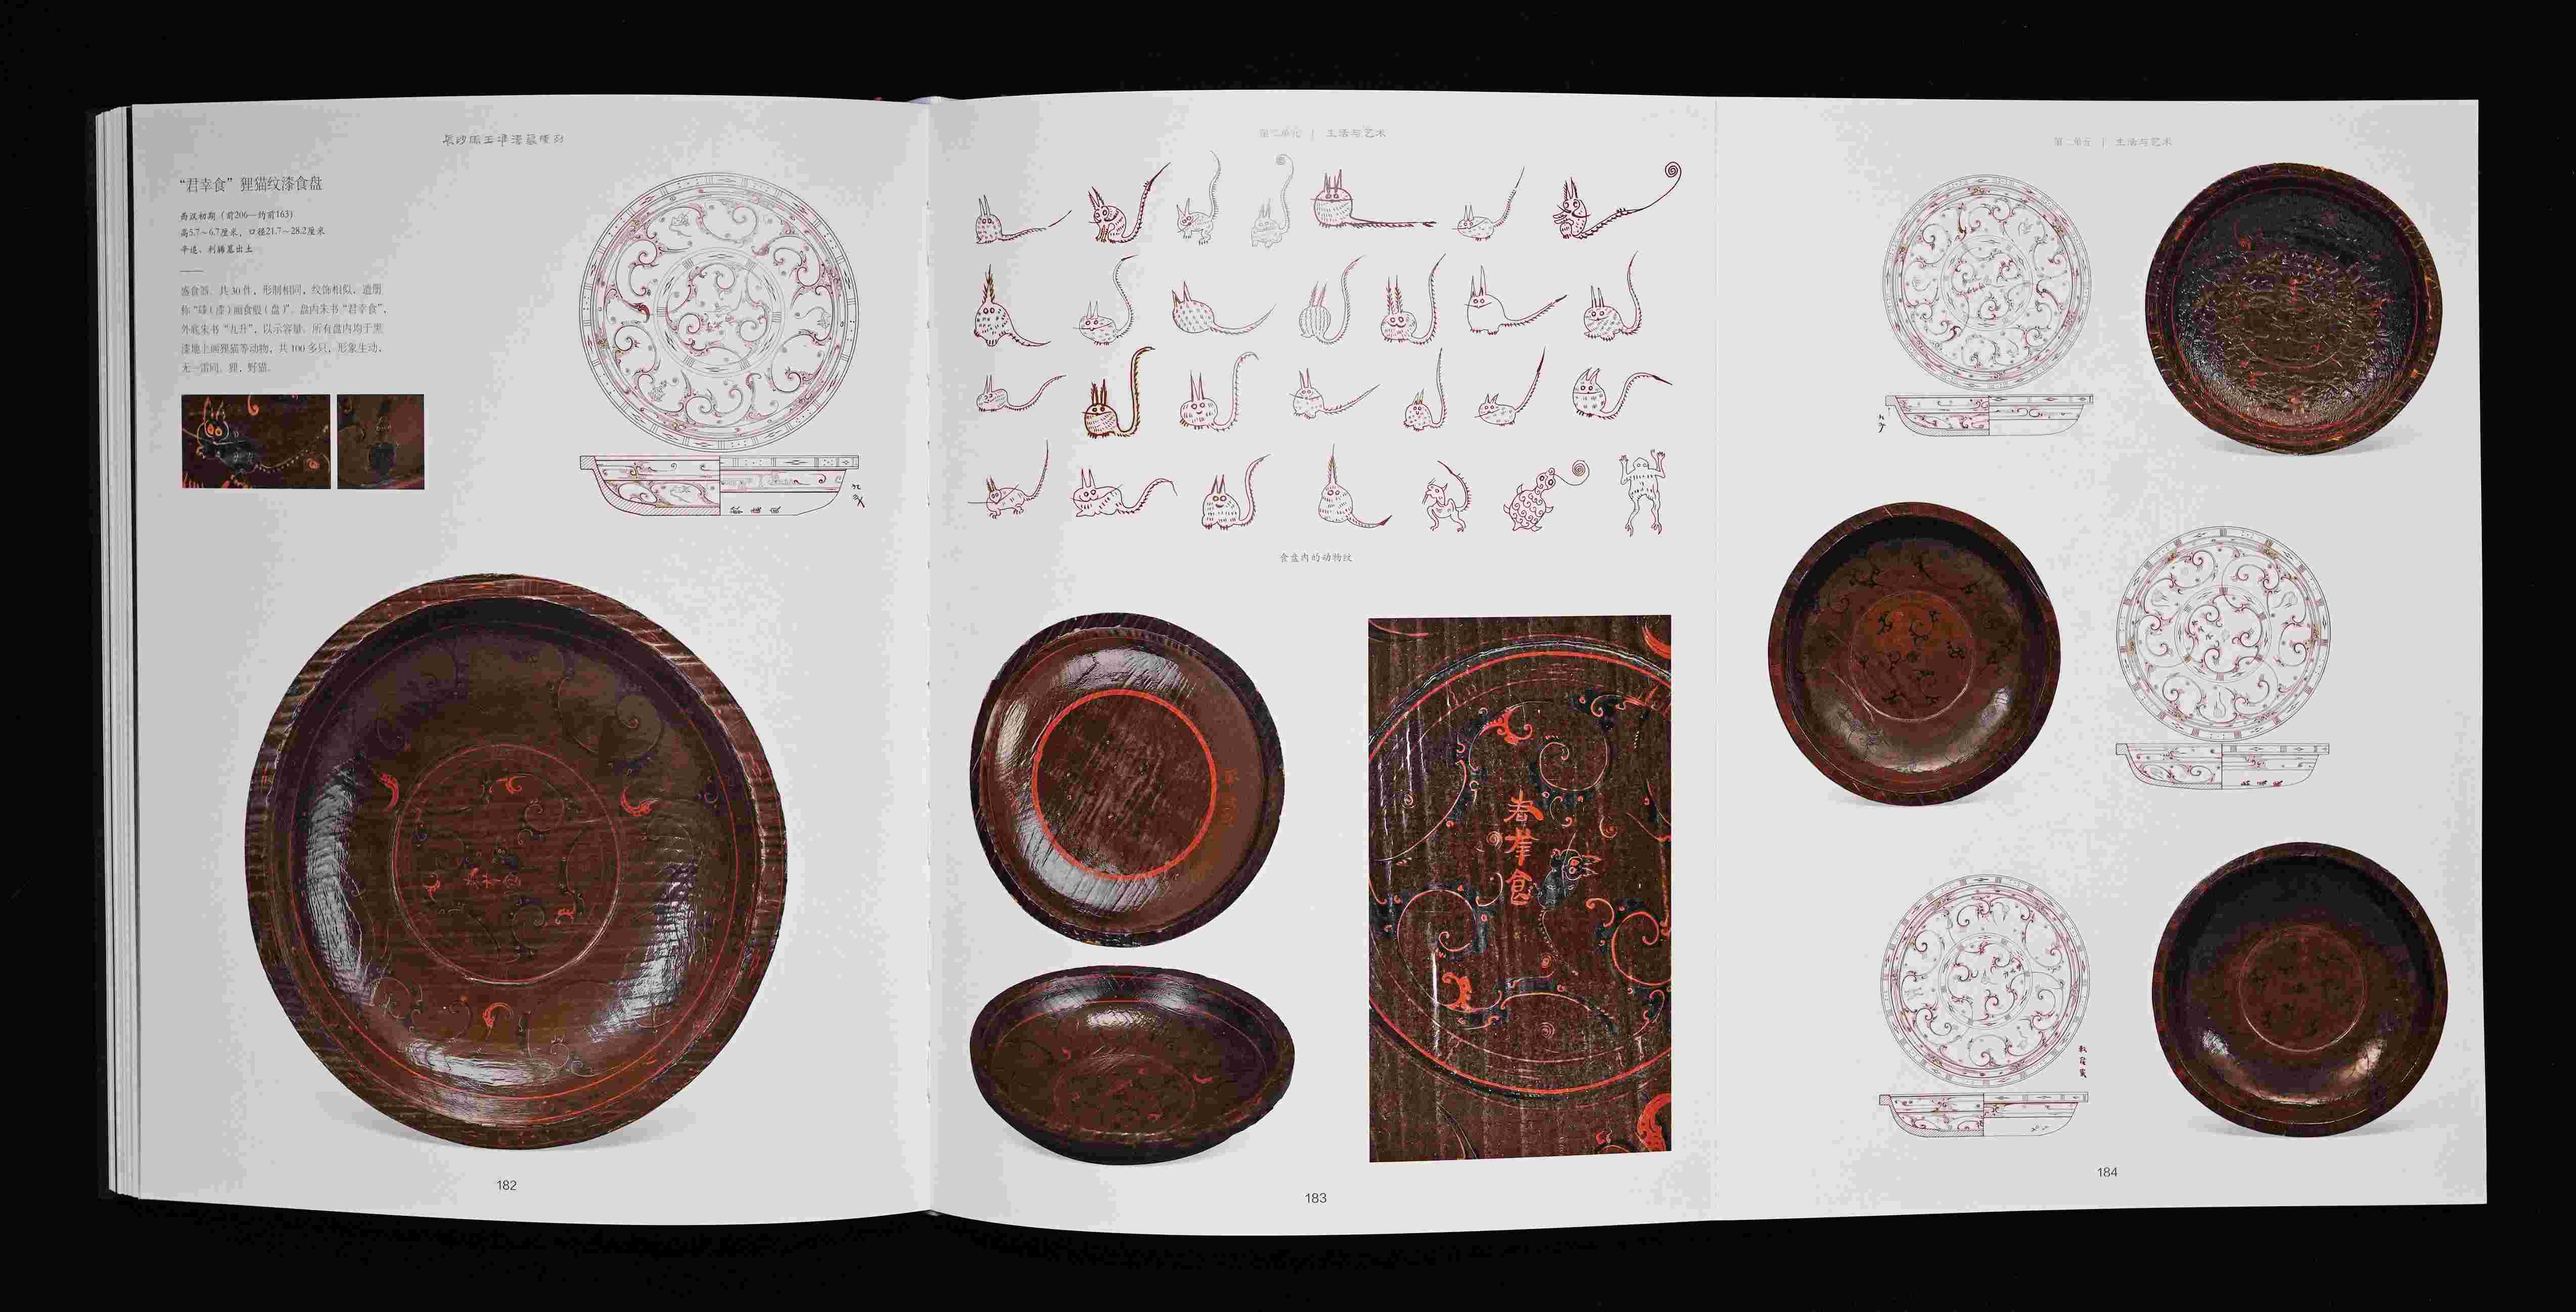 长沙马王堆汉墓陈列
“君幸食”狸猫纹漆食盘
西汉初期（前206—约前163）
高5.7～6.7厘米，口径21.7～28.2厘米
辛追、利豨墓出土
盛食器。共30件，形制相同，纹饰相似。遣册
称“髹（漆）画食般（盘）”。盘内朱书“君幸食”，
外底朱书“九升”，以示容量。所有盘内均于黑
漆地上画狸猫等动物，共100多只，形象生动，
无一雷同。狸，野猫。
182
第二单元 | 生活与艺术
食盘内的动物纹
君幸食
183
第二单元 | 生活与艺术
184